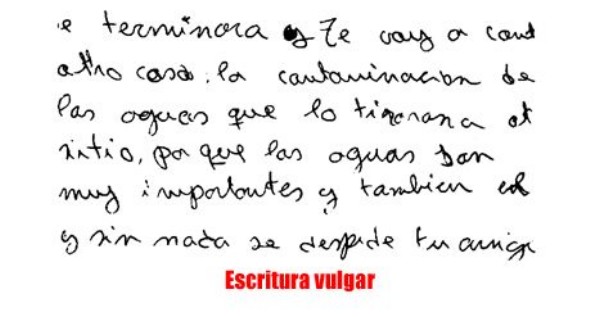 e terminara y Te voy a cont
otra cosa: la contaminacion de
las aguas que lo tiraran a ot
sitio, por que las aguas son
muy importantes y tambien el
y sin nada se despide tu amiga
Escritura vulgar